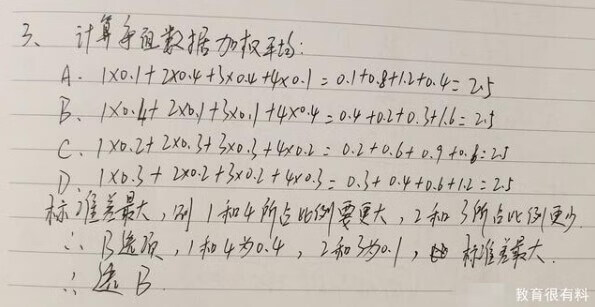 3、计算每组数据加权平均:
A. 1×0.1+2×0.4+3×0.4+4×0.1=0.1+0.8+1.2+0.4=2.5
B. 1×0.4+2×0.1+3×0.1+4×0.4=0.4+0.2+0.3+1.6=2.5
C. 1×0.2+2×0.3+3×0.3+4×0.2=0.2+0.6+0.9+0.8=2.5
D. 1×0.3+2×0.2+3×0.2+4×0.3=0.3+0.4+0.6+1.2=2.5
标准差最大,则1和4所占比例要更大,2和3所占比例更少.
∴B选项,1和4为0.4,2和3为0.1,标准差最大.
∴选B.
教育很有料